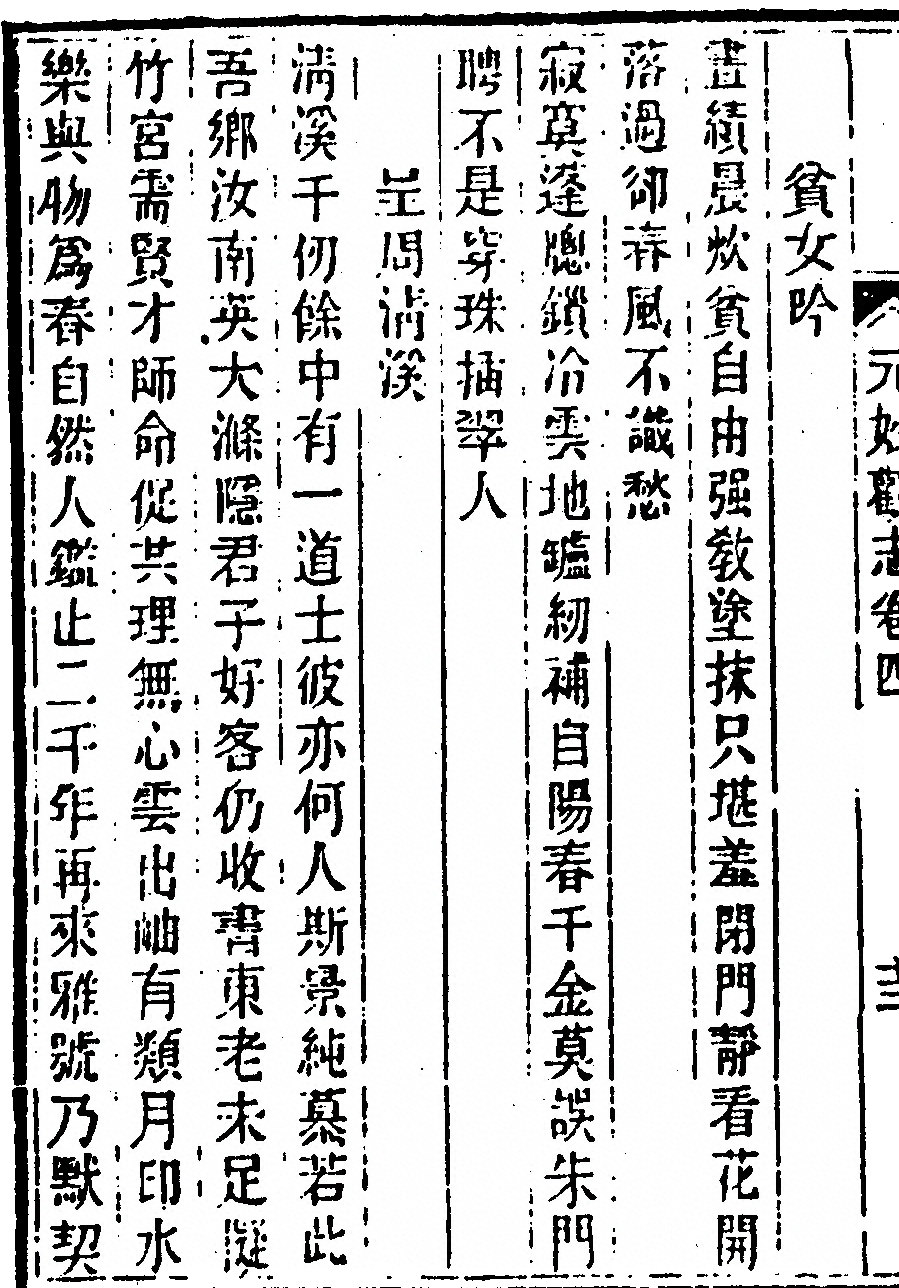 元妙觀志卷四
十三
貧女吟
晝績晨炊貧自由强教塗抹只堪羞閉門靜看花開
落過卻春風不識愁
寂寞蓬牕鎖冷雲地罏紉補自陽春千金莫誤朱門
聘不是穿珠插翠人
呈周清溪
清溪千仞餘中有一道士彼亦何人斯景純慕若此
吾鄉汝南英大滌隱君子好客仍收書東老未足擬
竹宮需賢才師命促共理無心雲出岫有類月印水
樂與物爲春自然人鑑止二千年再來雅號乃默契